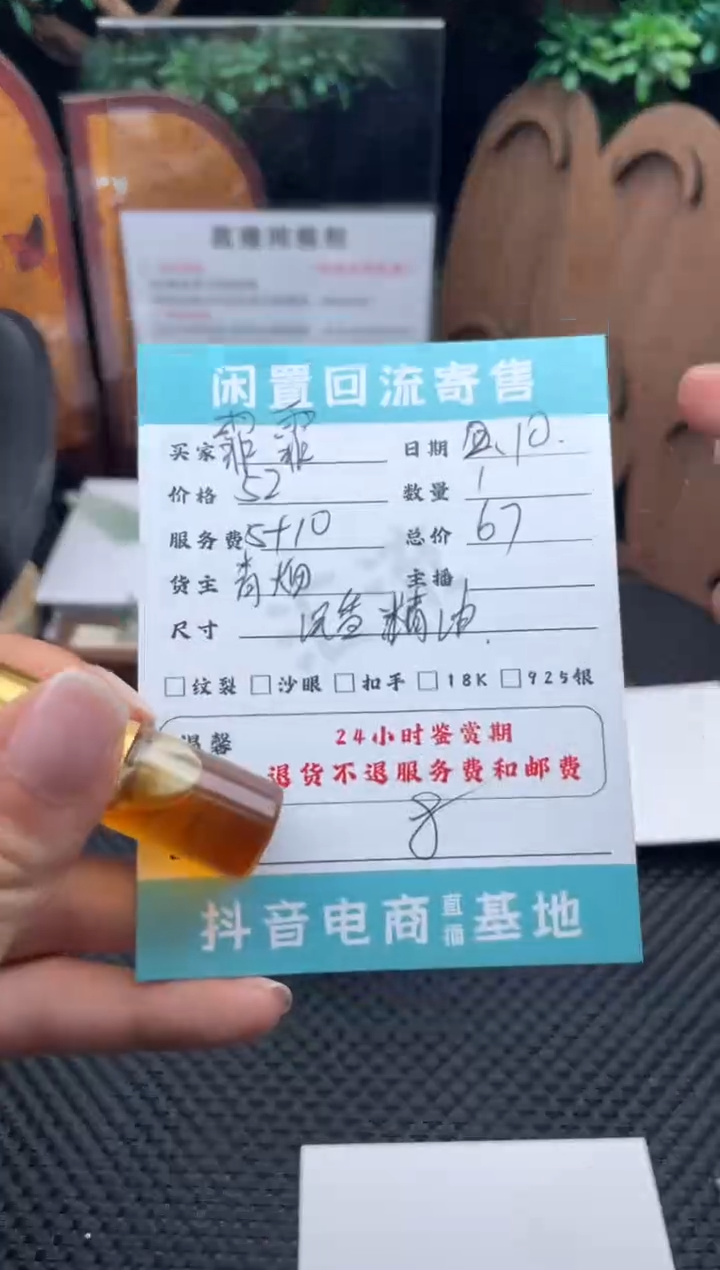 闲置回流寄售
买家 霏霏 日期 10.
价格 52 数量 1
服务费 5+10 总价 67
货主 青烟 主播
尺寸 沉香精油.
□纹裂 □沙眼 □扣手 □18K □925银
温馨 24小时鉴赏期
退货不退服务费和邮费
8
抖音电商直播基地